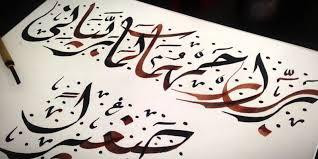 رب ارحمهما كما ربياني
صغيرا